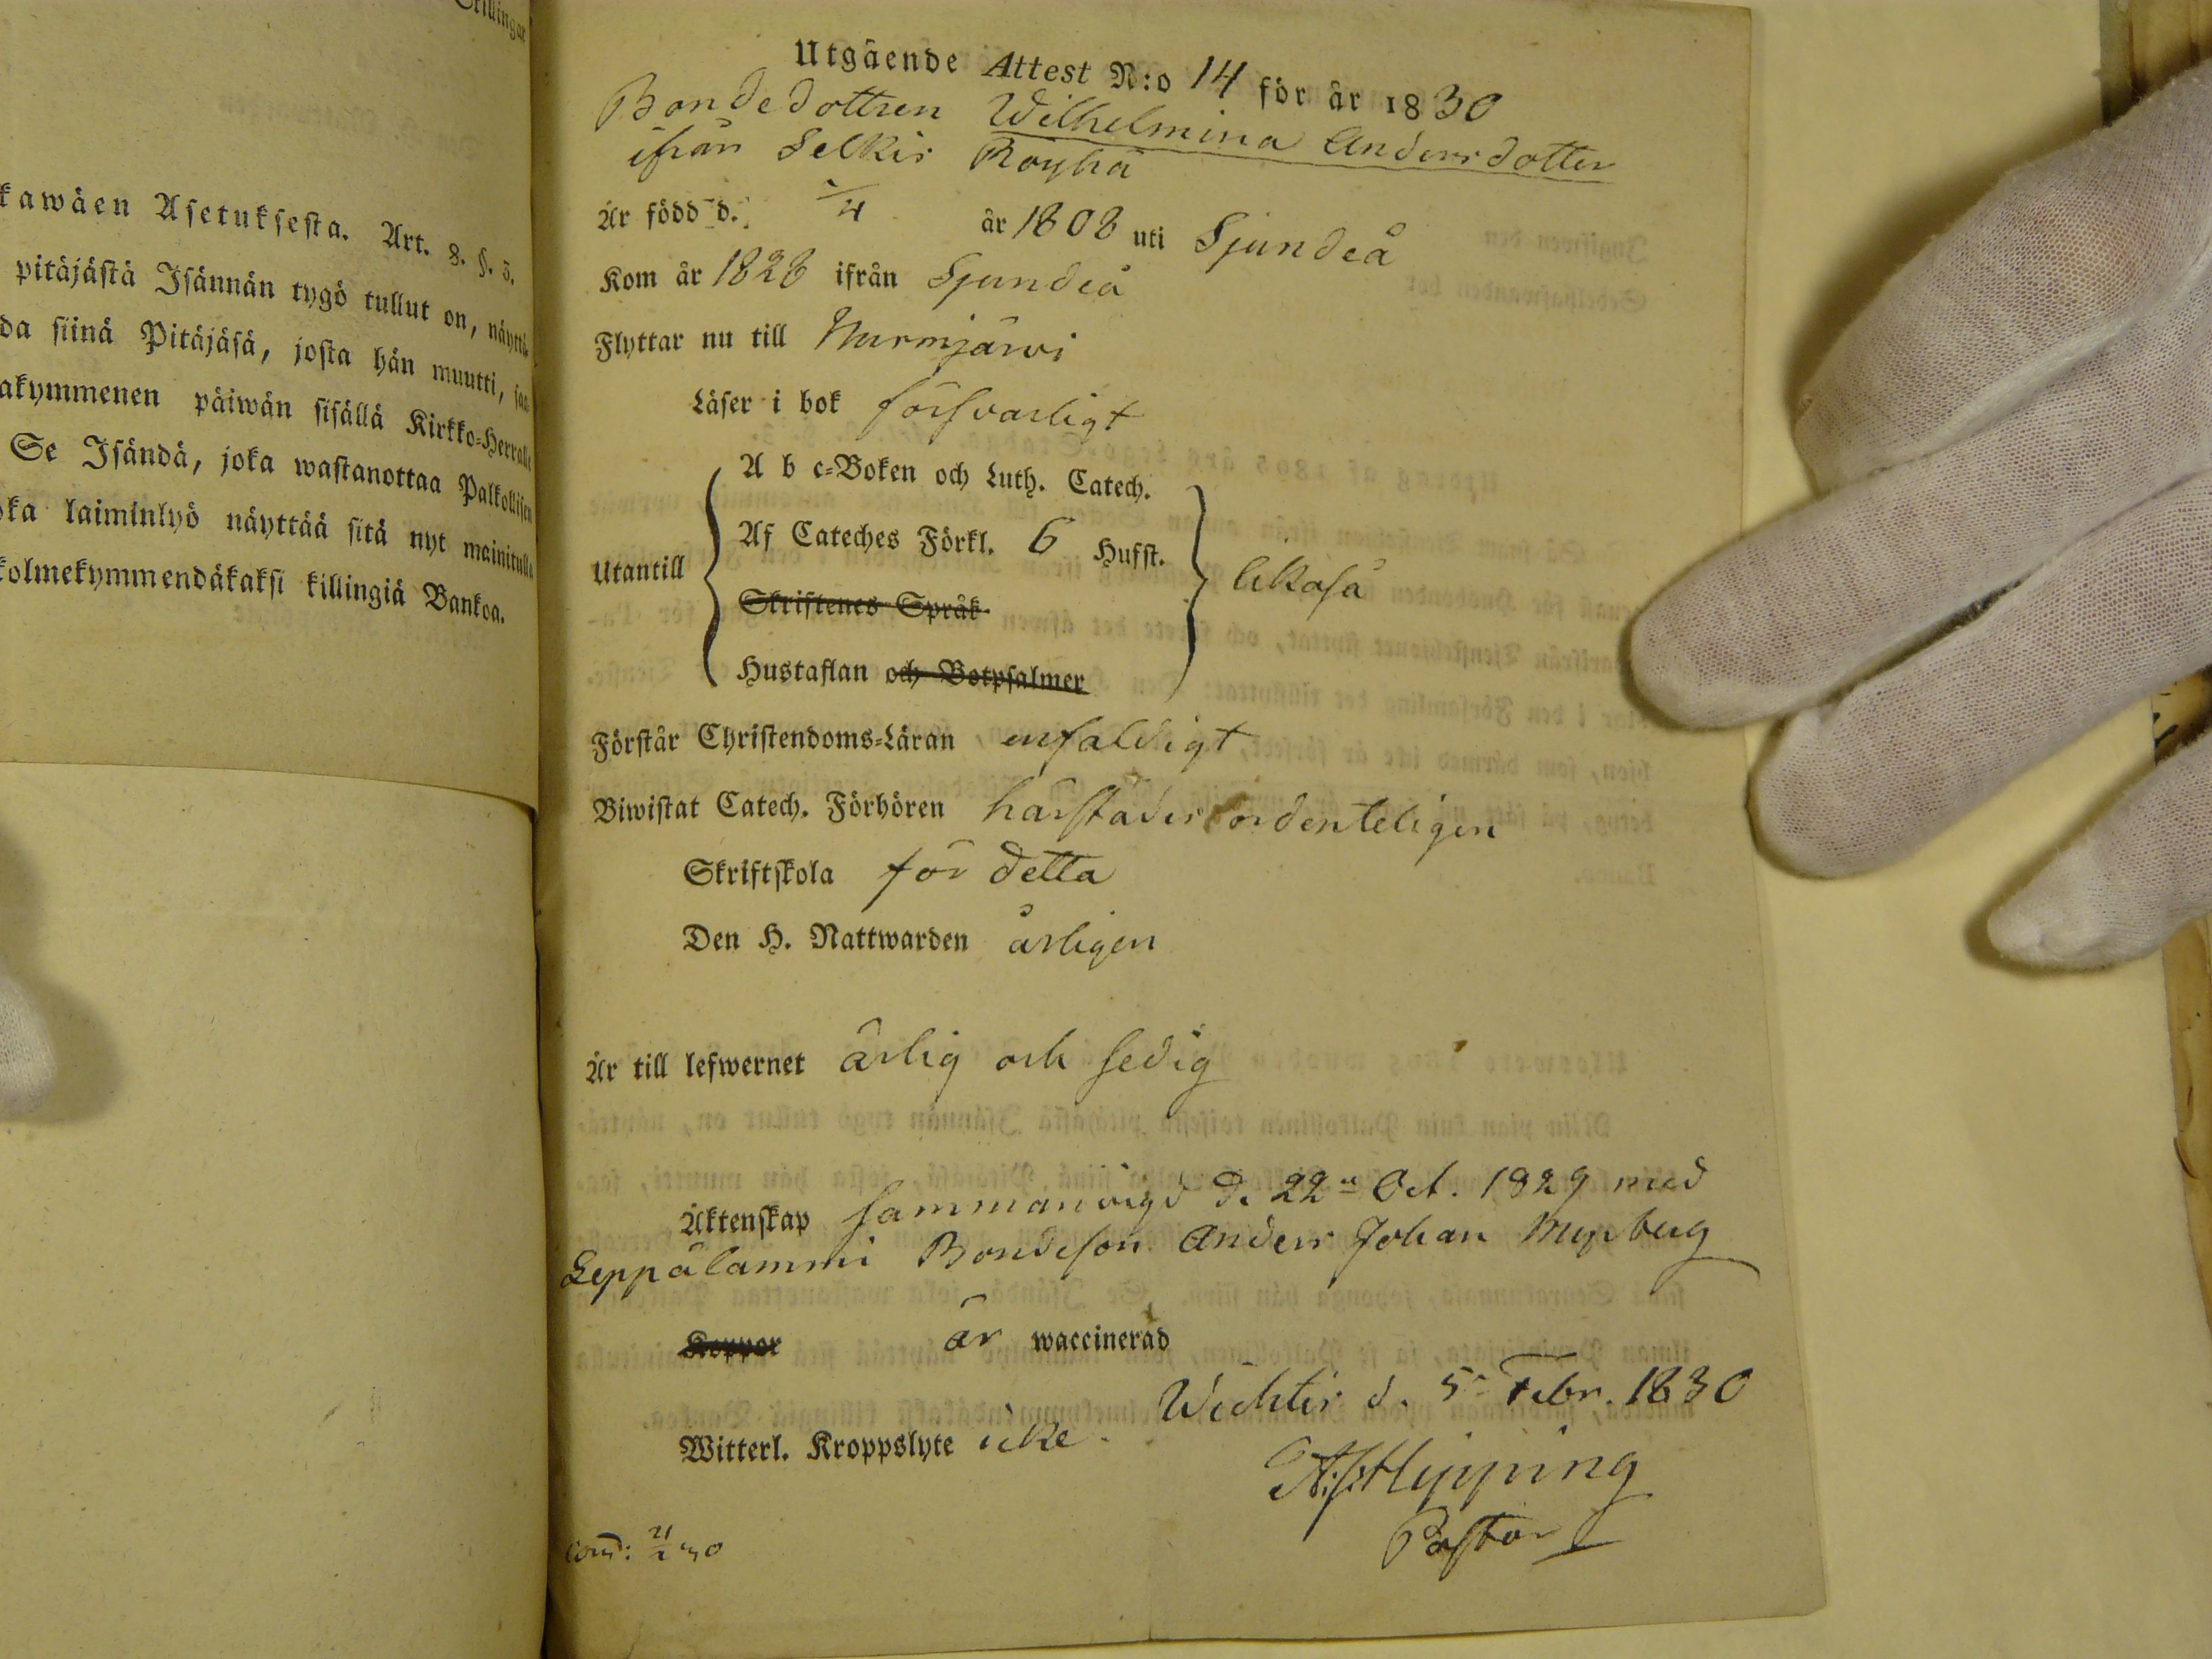 Skillingar
kawäen Asetuksesta. Art. 8. §. 5.
pitäjästä Isännän tygö tullut on, näyttä-
da siinä Pitäjäsä, josta hän muutti, saa-
akymmenen päiwän sisällä Kirkko-Herralle
Se Isändä, joka wastanottaa Palkollisen
ka laiminlyö näyttää sitä nyt mainitulla
kolmekymmendäkaksi killingiä Bankoa.
Utgående Attest N:o 14 för år 1830
Bondedottren Wilhelmina Andersdotter
ifrån Selkis Röyhä
Är född d. /4 år 1808 uti Sjundeå
Kom år 1828 ifrån Sjundeå
Flyttar nu till Nurmijärwi
Läser i bok försvarligt
A b c-Boken och Luth. Catech.
Af Cateches Förkl. 6 Hufst.
Utantill likaså
Skriftenes Språk
Hustaflan och Botpsalmer
Förstår Christendoms-Läran enfaldigt
Biwistat Catech. Förhören härstädes ordenteligen
Skriftskola för detta
Den H. Nattwarden årligen
Är till lefwernet ärlig och sedig
Äktenskap sammanvigd d. 22 Oct. 1829 med
Leppälammi Bondeson Anders Johan Myrberg
Koppor är waccinerad
Wichtis d. 5 Febr. 1830
Witterl. Kroppslyte icke.
Hipping
Pastor